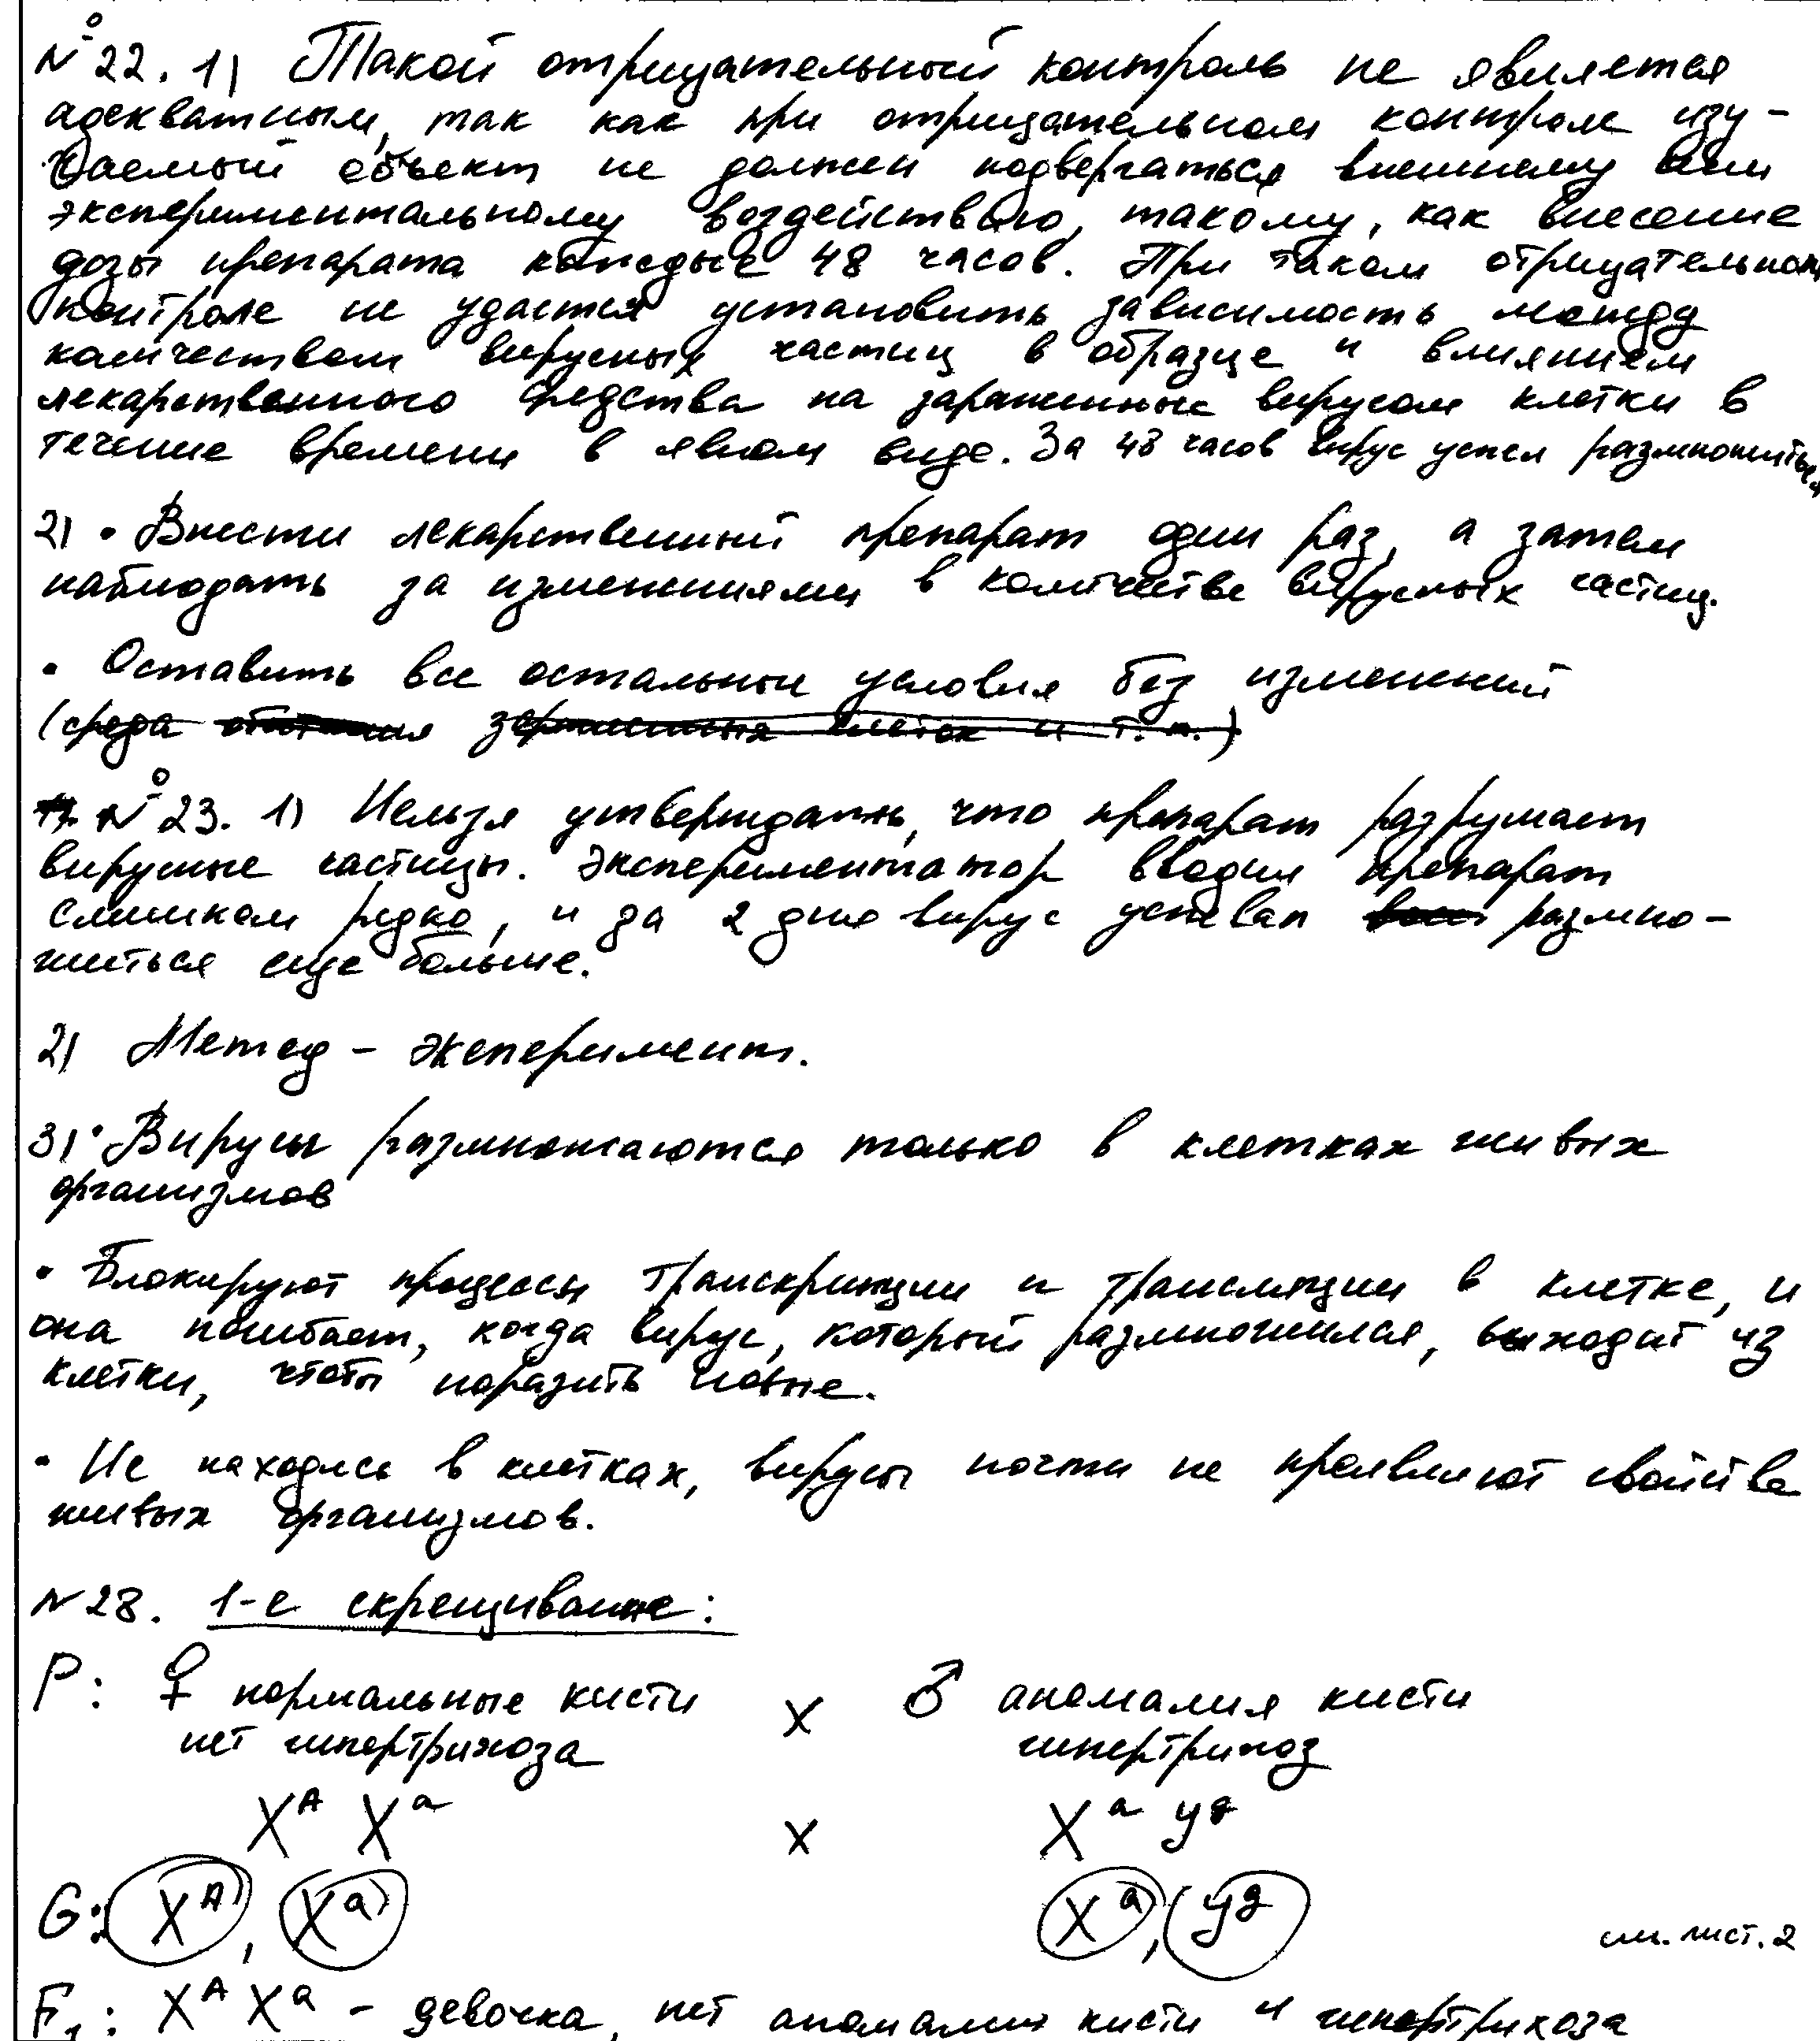 № 22. 1) Такой отрицательный контроль не является
адекватным, так как при отрицательном контроле изу-
чаемый объект не должен подвергаться внешнему или
экспериментальному воздействию, такому, как внесение
дозы препарата каждые 48 часов. При таком отрицательном
контроле не удастся установить зависимость между
количеством вирусных частиц в образце и влиянием
лекарственного средства на зараженные вирусом клетки в
течение времени в явном виде. За 48 часов вирус успел размножиться
2) • Внести лекарственный препарат один раз, а затем
наблюдать за изменениями в количестве вирусных частиц.
• Оставить все остальные условия без изменений
(среда обитания зараженных клеток и т. п.)
№ 23. 1) Нельзя утверждать, что препарат разрушает
вирусные частицы. Экспериментатор вводил препарат
слишком редко, и за 2 дня вирус успевал размно-
житься еще больше.
2) Метод – эксперимент.
3) • Вирусы размножаются только в клетках живых
организмов
• Блокируют процессы транскрипции и трансляции в клетке, и
она погибает, когда вирус, который размножился, выходит из
клетки, чтобы поразить новые.
• Не находясь в клетках, вирусы почти не проявляют свойства
живых организмов.
№ 28. 1-е скрещивание:
P: ♀ нормальные кисти х ♂ аномалия кисти
нет гипертрихоза гипертрихоз
X^A X^a х X^a y^g
G: X^A, X^a X^a, y^g
см. лист. 2
F₁: X^A X^a – девочка, нет аномалии кисти и гипертрихоза